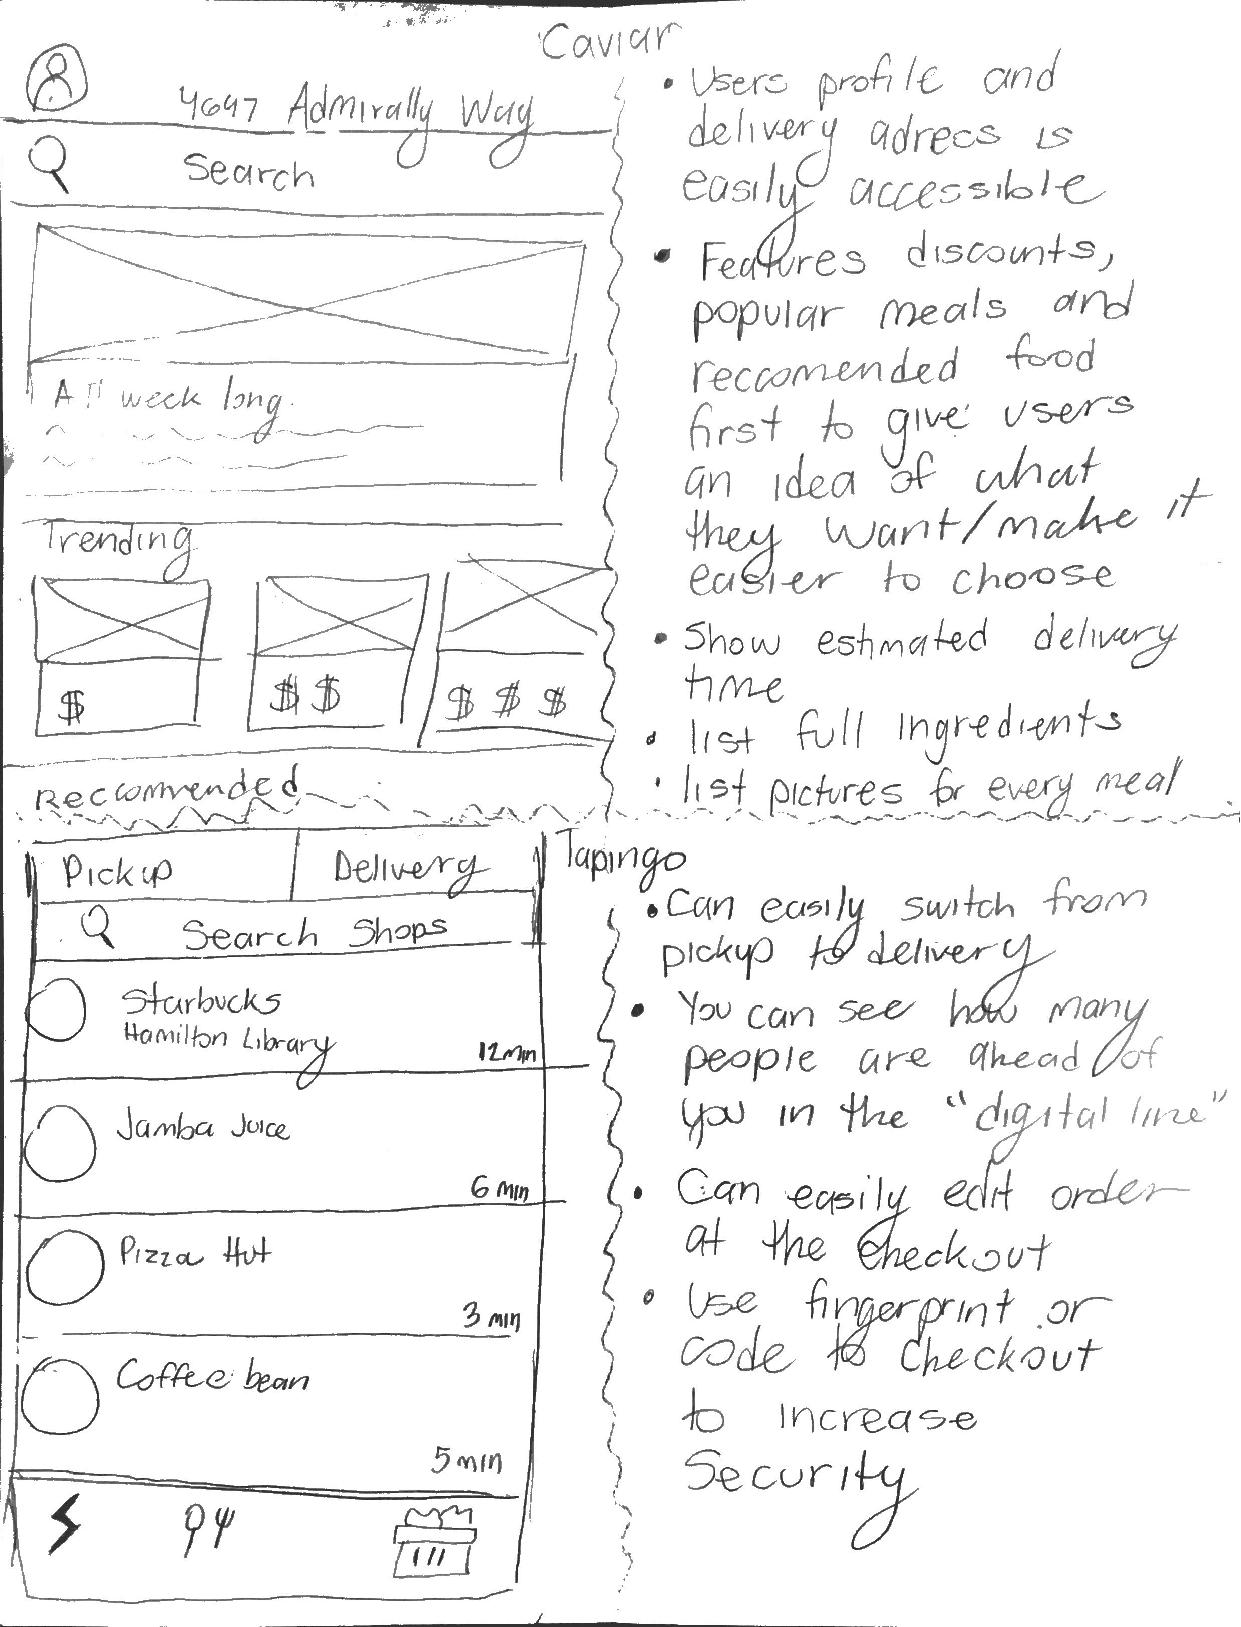 Caviar
4697 Admirally Way
Search
All week long.
Trending
$
$$
$$$
Reccomended
• Users profile and
delivery adrecs is
easily accessible
• Features discounts,
popular meals and
reccomended food
first to give users
an idea of what
they want/make it
easier to choose
• Show estimated delivery
time
• list full ingredients
• list pictures for every meal
Tapingo
Pickup
Delivery
Search Shops
Starbucks
Hamilton Library
12min
Jamba Juice
6 min
Pizza Hut
3 min
Coffee bean
5 min
• Can easily switch from
pickup to delivery
• You can see how many
people are ahead of
you in the "digital line"
• Can easily edit order
at the checkout
• Use fingerprint or
code to checkout
to increase
Security